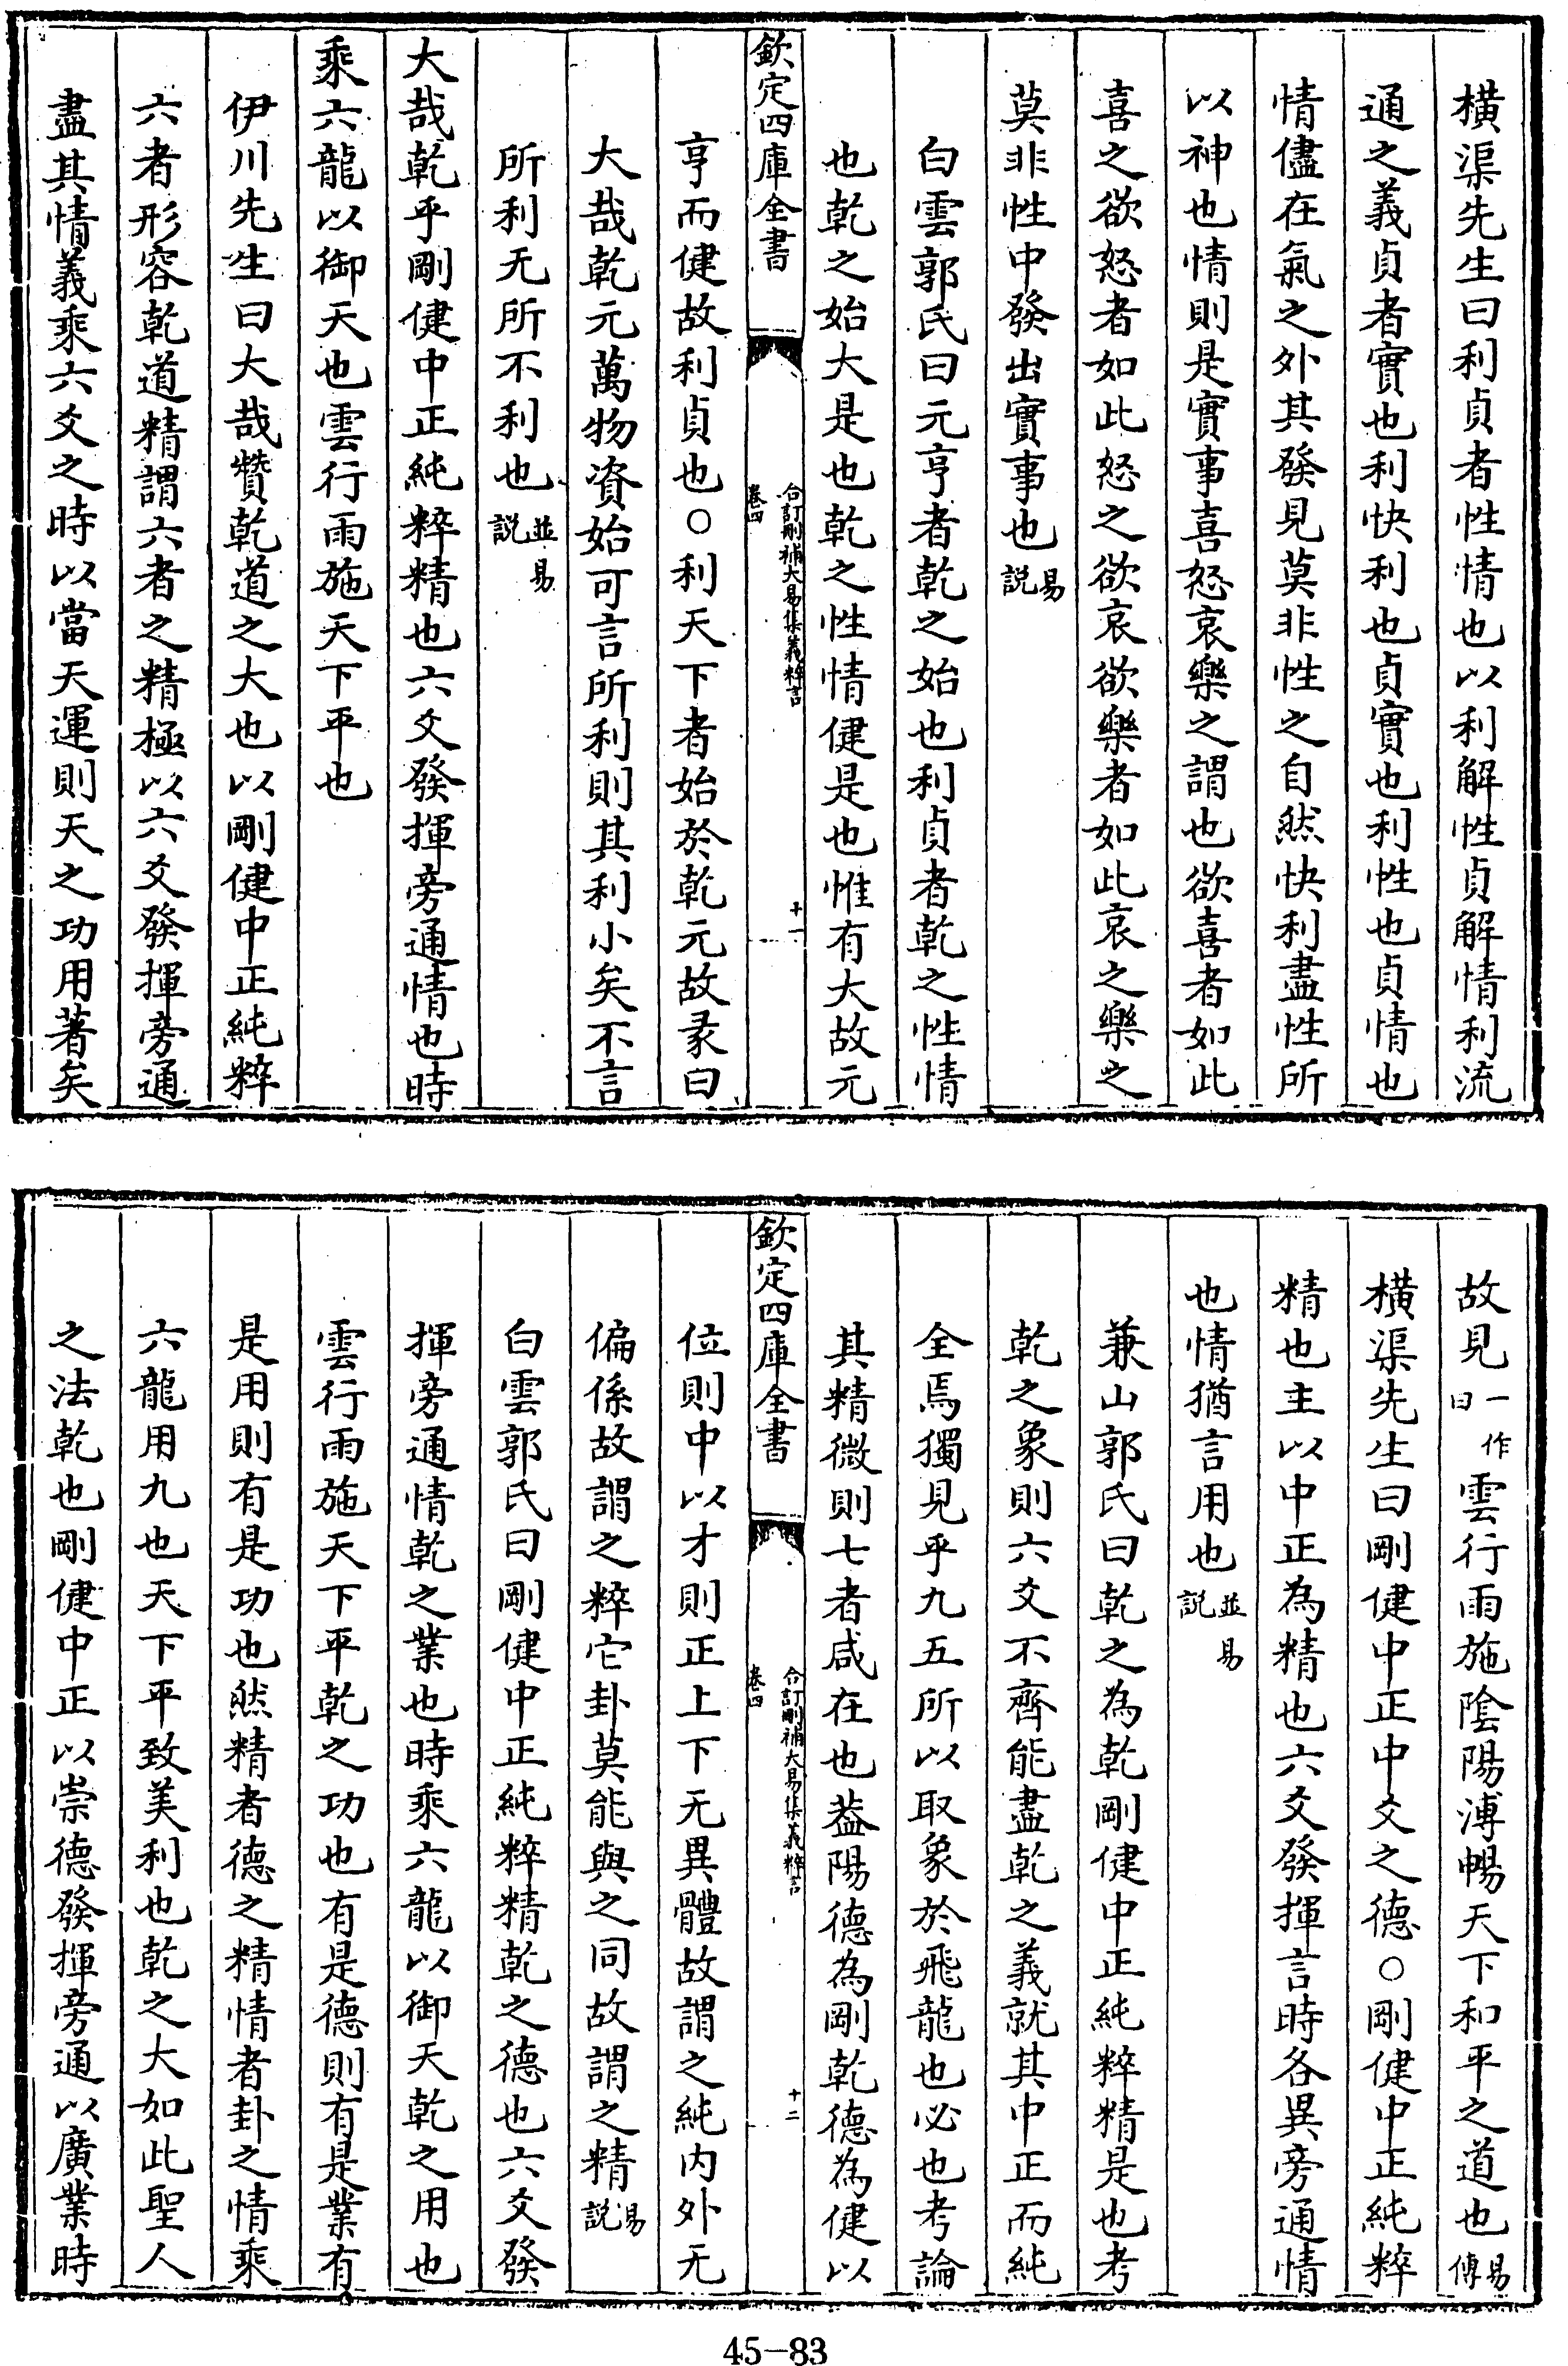 橫渠先生曰利貞者性情也以利解性貞解情利流
通之義貞者實也利快利也貞實也利性也貞情也
情儘在氣之外其發見莫非性之自然快利盡性所
以神也情則是實事喜怒哀樂之謂也欲喜者如此
喜之欲怒者如此怒之欲哀欲樂者如此哀之樂之
莫非性中發出實事也易說
白雲郭氏曰元亨者乾之始也利貞者乾之性情
也乾之始大是也乾之性情健是也惟有大故元
欽定四庫全書
合訂刪補大易集義粹言
卷四
十一
亨而健故利貞也○利天下者始於乾元故彖曰
大哉乾元萬物資始可言所利則其利小矣不言
所利无所不利也並易說
大哉乾乎剛健中正純粹精也六爻發揮旁通情也時
乘六龍以御天也雲行雨施天下平也
伊川先生曰大哉贊乾道之大也以剛健中正純粹
六者形容乾道精謂六者之精極以六爻發揮旁通
盡其情義乘六爻之時以當天運則天之功用著矣
故見一作曰雲行雨施陰陽溥暢天下和平之道也易傳
橫渠先生曰剛健中正中爻之德○剛健中正純粹
精也主以中正為精也六爻發揮言時各異旁通情
也情猶言用也並易說
兼山郭氏曰乾之為乾剛健中正純粹精是也考
乾之象則六爻不齊能盡乾之義就其中正而純
全焉獨見乎九五所以取象於飛龍也必也考論
其精微則七者咸在也葢陽德為剛乾德為健以
欽定四庫全書
合訂刪補大易集義粹言
卷四
十二
位則中以才則正上下无異體故謂之純內外无
偏係故謂之粹它卦莫能與之同故謂之精易說
白雲郭氏曰剛健中正純粹精乾之德也六爻發
揮旁通情乾之業也時乘六龍以御天乾之用也
雲行雨施天下平乾之功也有是德則有是業有
是用則有是功也然精者德之精情者卦之情乘
六龍用九也天下平致美利也乾之大如此聖人
之法乾也剛健中正以崇德發揮旁通以廣業時
45-83